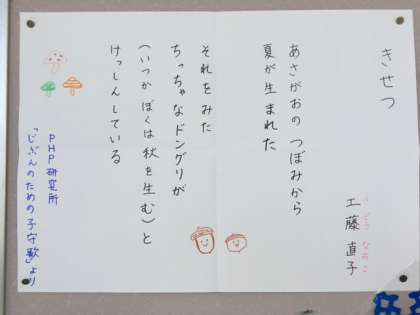 きせつ
くどう なおこ
工藤 直子
あさがおの つぼみから
夏が生まれた
それをみた
ちっちゃなドングリが
(いつか ぼくは秋を生む)と
けっしんしている
PHP研究所
「じぶんのための子守歌」より